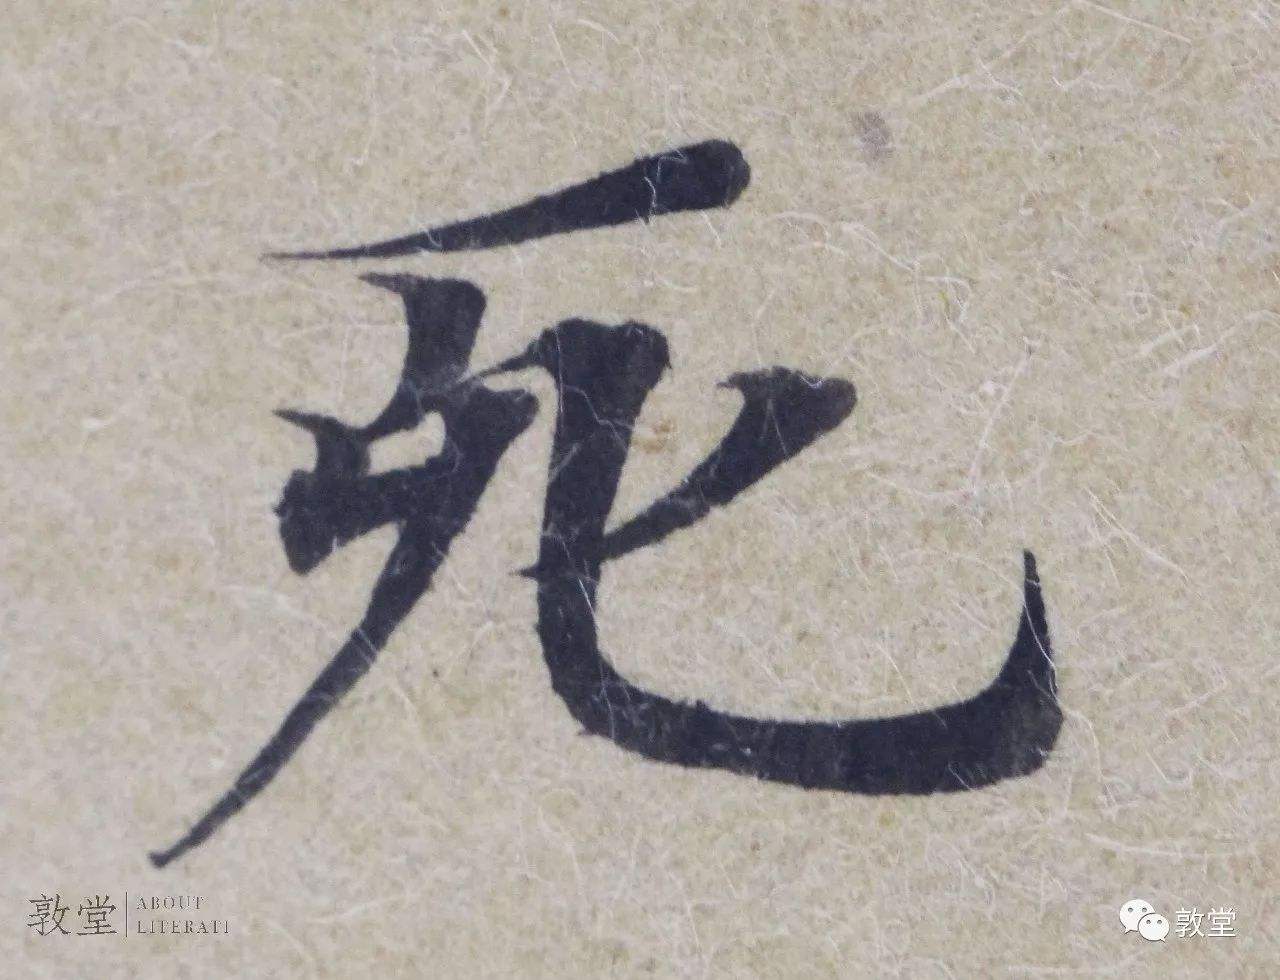 死
敦堂 ABOUT LITERATI
敦堂